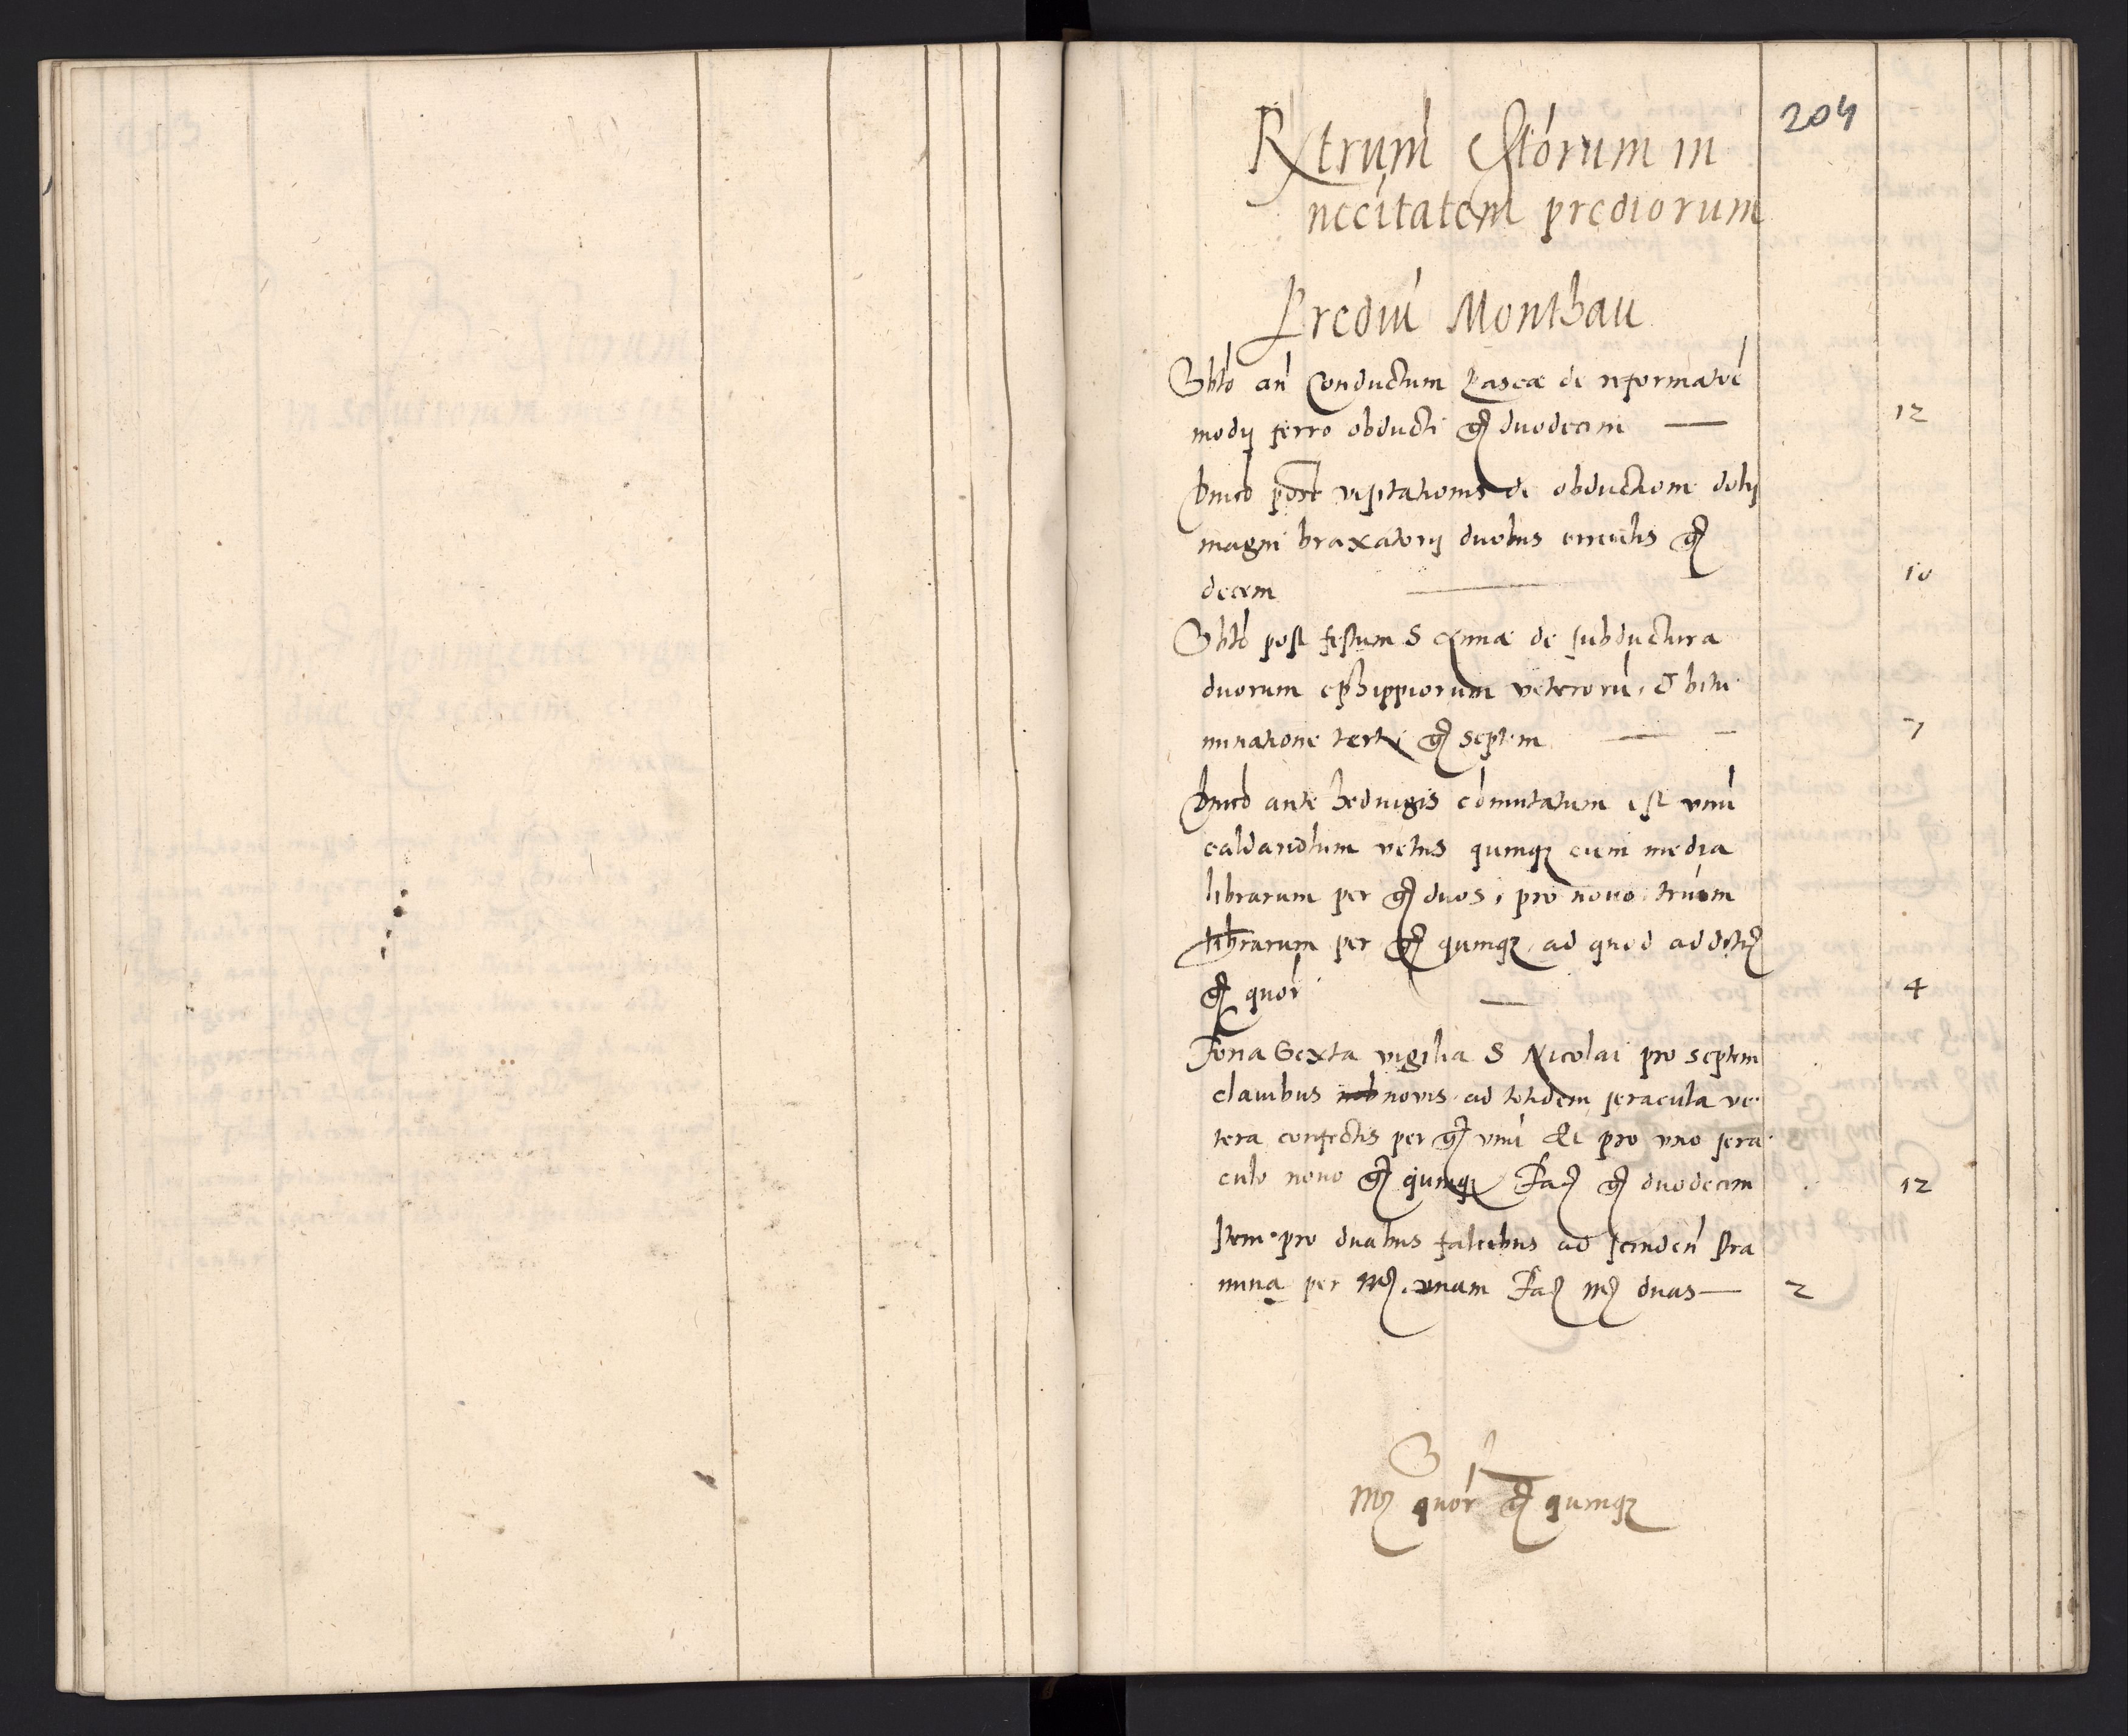 204
Rxtrum Extorum in
nccitatem prediorum
Prediu Monthau
Sbto an Conductum Pascæ de reformatõe
modij ferro obducti gr duodecim — 12
Dnico post visitationis de obductione dolij
magni braxatorij duobus circulis gr
decem — 10
Sbto post festum S Annæ de subductura
duorum ephippiorum veteroru, & bitu
minatione tertij gr septem — 7
Dnico ante hedvigis comutatum est vnu
caldariolum vetus quinqz cum media
librarum per gr duos, pro nouo trium
librarum per gr quinqz ad quod additus
gr quor — 4
Feria Sexta vigilia S Nicolai pro septem
clauibus nob novis ad totidem seracula ve
tera confectis per gr vnu Et pro vno sera
culo nouo gr quinqz Fac gr duodecim 12
Item pro duabus falcibus ad scinden stra
mina per mr vnam Fac mr duas — 2
mr quor gr quinqz